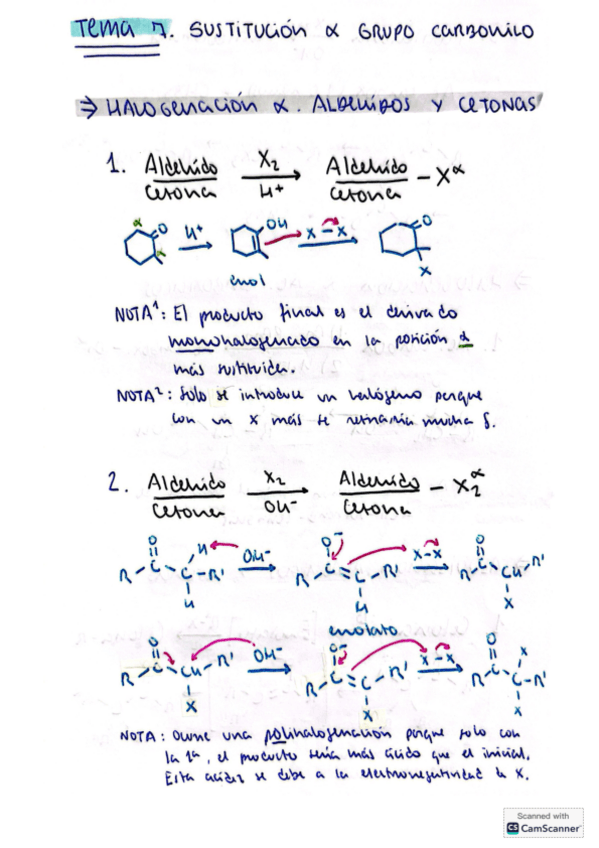 Tema 7. SUSTITUCIÓN α GRUPO CARBONILO
⇒ HALOGENACIÓN α. ALDEHÍDOS Y CETONAS
1. Aldehído/Cetona X₂/H⁺ → Aldehído/Cetona – Xα
α O H⁺ OH X–X O
X
enol
NOTA¹: El producto final es el derivado
monohalogenado en la posición α
más sustituida.
NOTA²: Solo se introduce un halógeno porque
con un X más se retiraría mucha δ.
2. Aldehído/Cetona X₂/OH⁻ → Aldehído/Cetona – X₂α
O H OH⁻ O⁻ X–X O
R–C–C–R' R–C=C–R' R–C–CH–R'
H H X
enolato
O OH⁻ O⁻ X–X O X
R–C–CH–R' R–C=C–R' R–C–C–R'
X X X
NOTA: Ocurre una polihalogenación porque solo con
la 1ª, el producto sería más ácido que el inicial.
Esta acidez se debe a la electronegatividad de X.
Scanned with
CS CamScanner